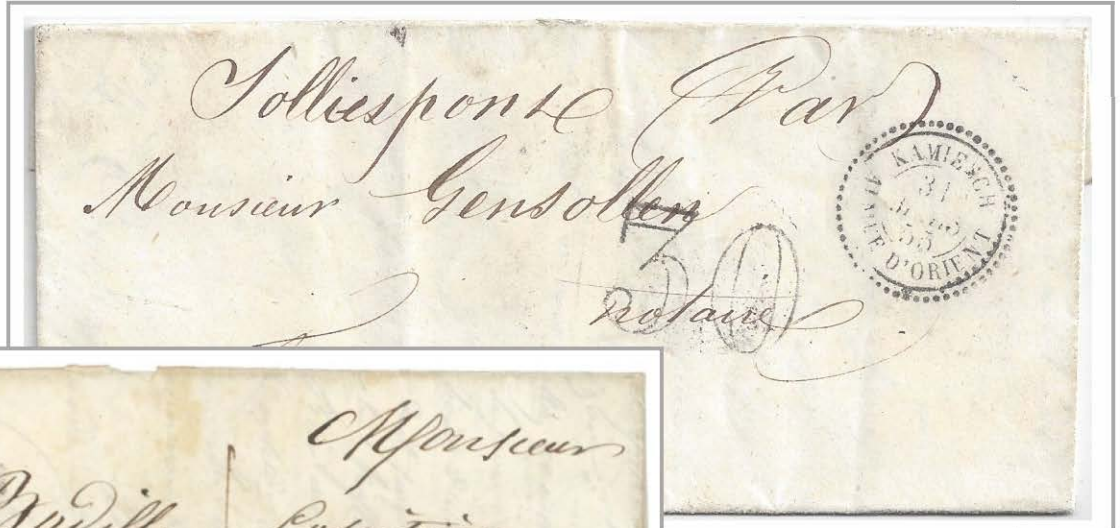 Solliespont (Var)
Monsieur Gensollen
notaire
30
KAMIESCH
31
55
ARMÉE D'ORIENT
Monsieur